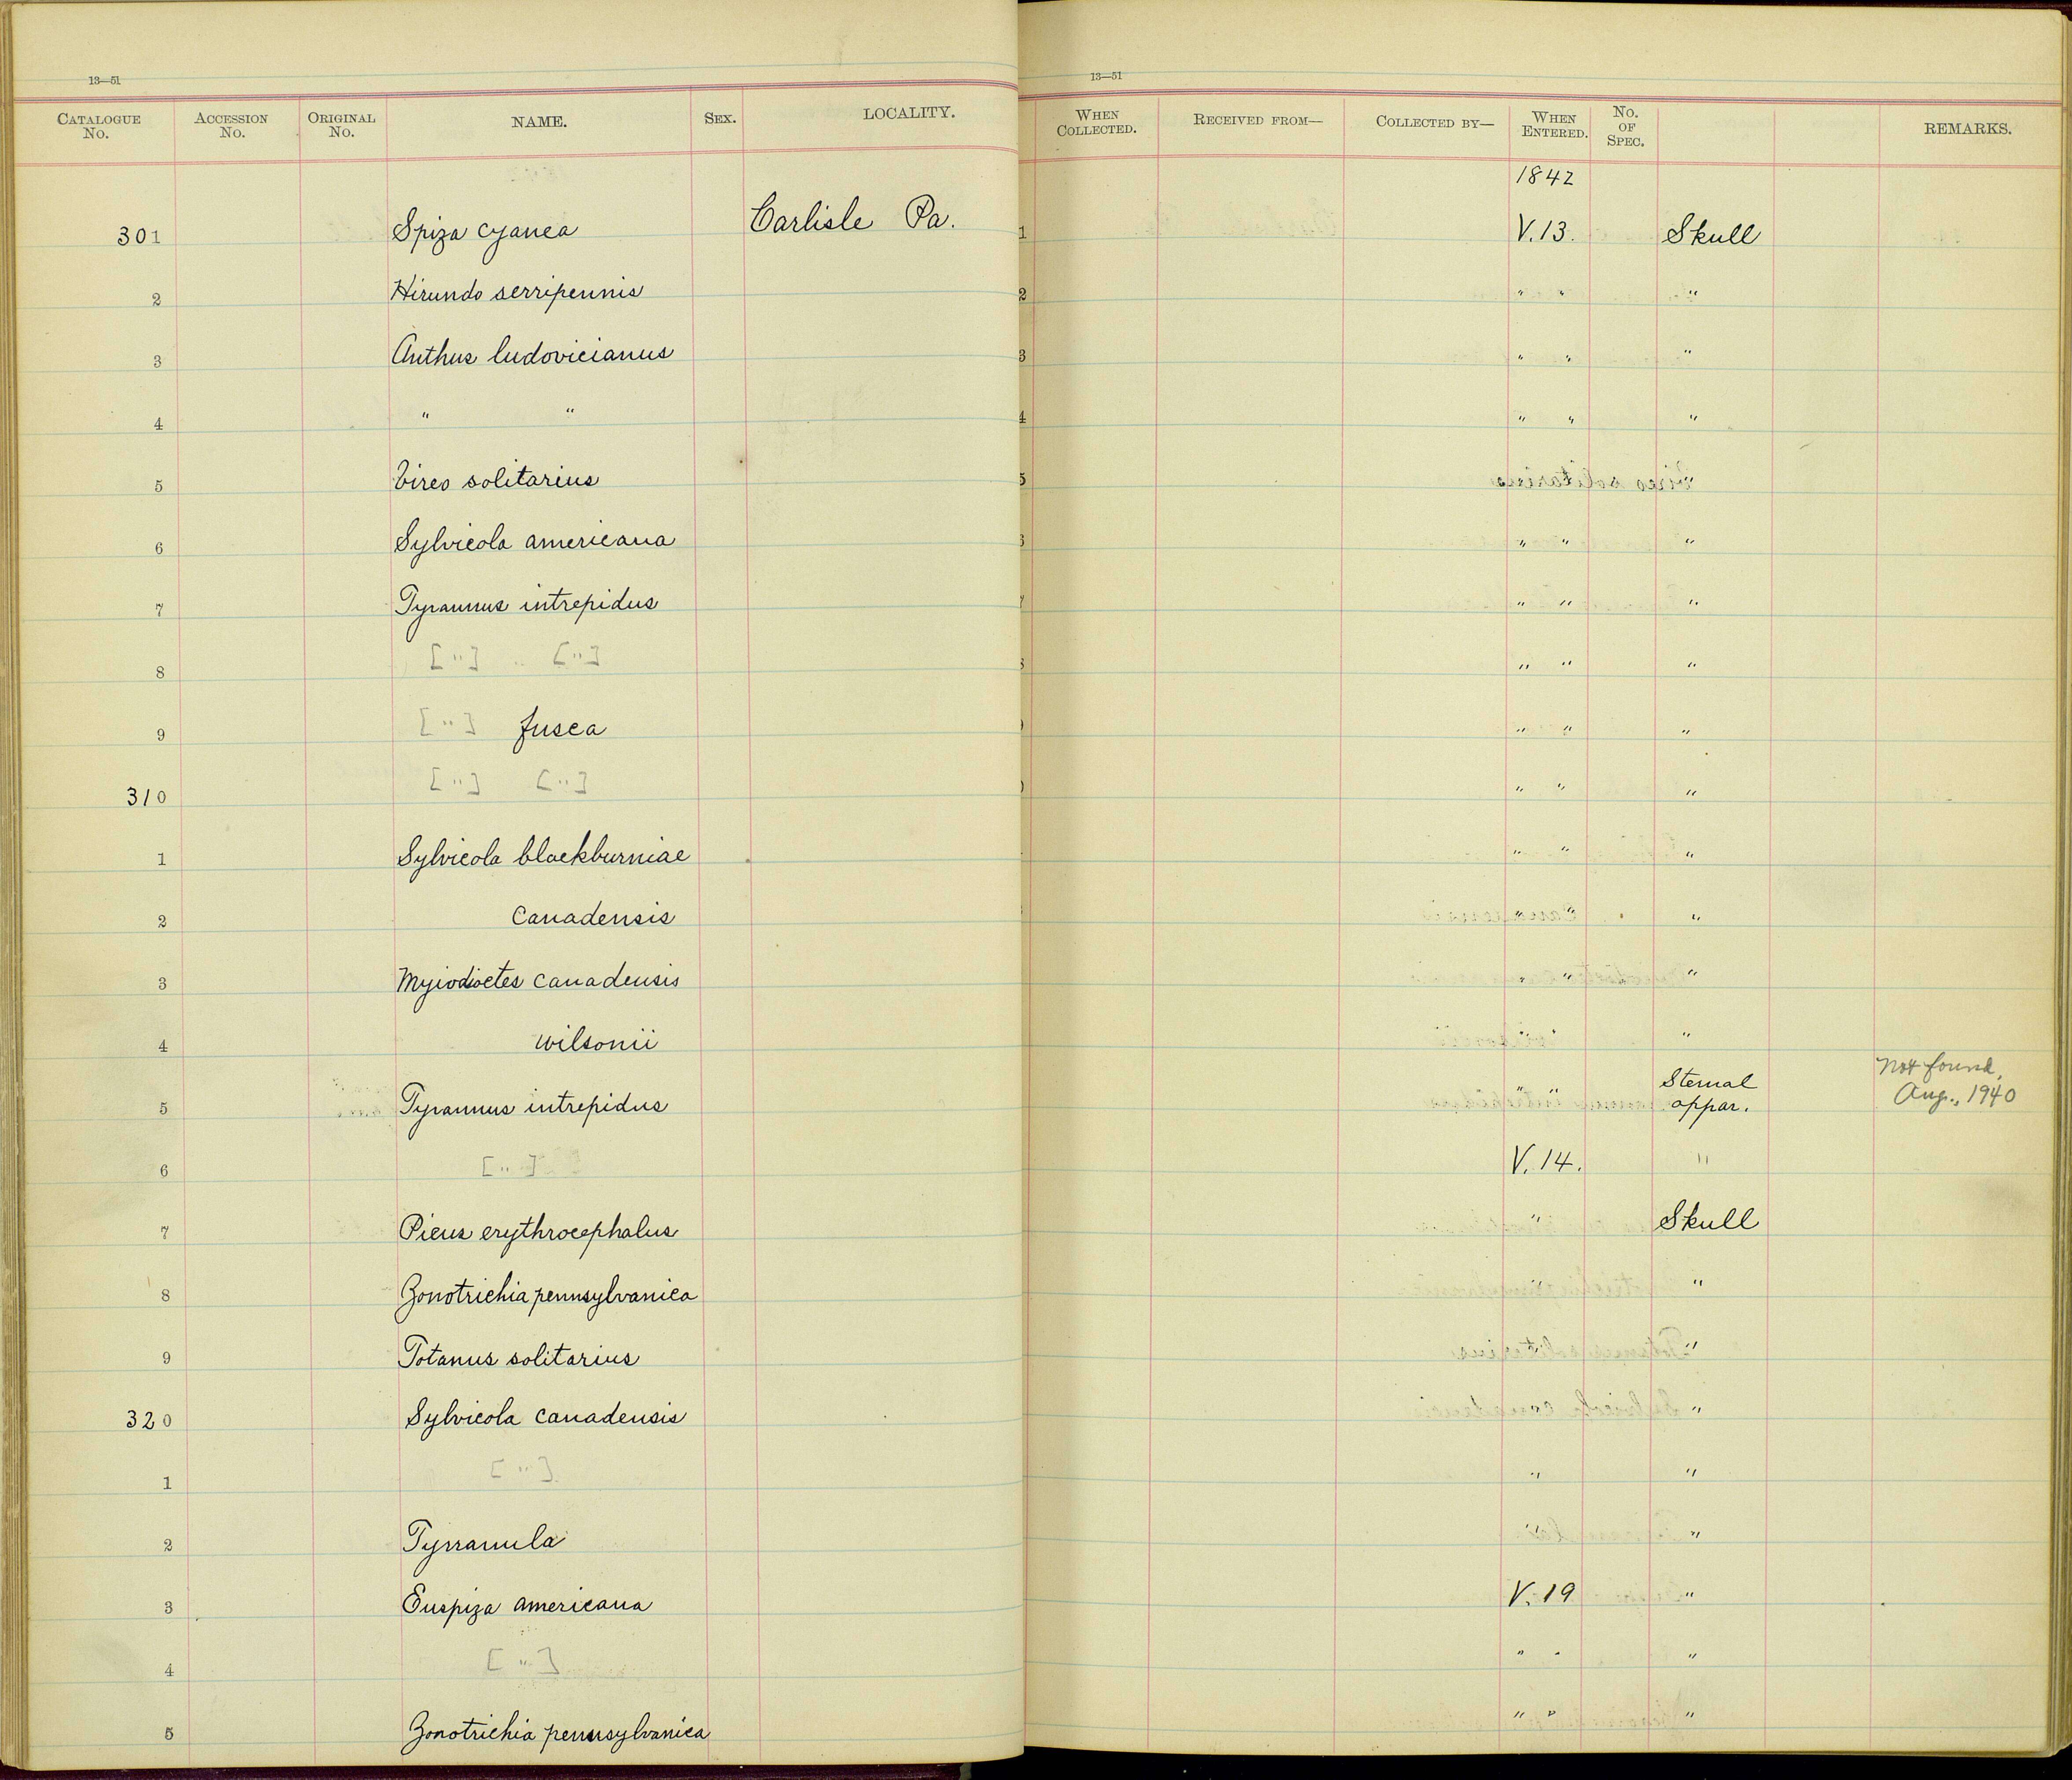 13—51
CATALOGUE No. ACCESSION No. ORIGINAL No. NAME. SEX. LOCALITY.
301 Spiza cyanea Carlisle Pa.
2 Hirundo serripennis
3 Anthus ludovicianus
4 " "
5 Vireo solitarius
6 Sylvicola americana
7 Tyrannus intrepidus
8 ["] ["]
9 ["] fusca
310 ["] ["]
1 Sylvicola blackburniae
2 canadensis
3 Myiodioctes canadensis
4 wilsonii
5 Tyrannus intrepidus
6 ["]
7 Picus erythrocephalus
8 Zonotrichia pennsylvanica
9 Totanus solitarius
320 Sylvicola canadensis
1 ["]
2 Tyrranula
3 Euspiza americana
4 ["]
5 Zonotrichia pennsylvanica
13—51
WHEN COLLECTED. RECEIVED FROM— COLLECTED BY— WHEN ENTERED. No. OF SPEC. REMARKS.
1842
1 V. 13. Skull
2 " " "
3 " " "
4 " " "
5 "
" " "
" " "
" " "
" " "
" " "
" " "
" " "
" " "
" "
" " Sternal appar. Not found, Aug., 1940
V. 14. "
" Skull
" "
" "
" "
" "
" "
V. 19 "
" " "
" " "